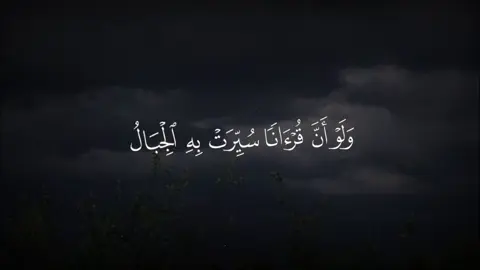 وَلَوۡ أَنَّ قُرۡءَانٗا سُيِّرَتۡ بِهِ ٱلۡجِبَالُ